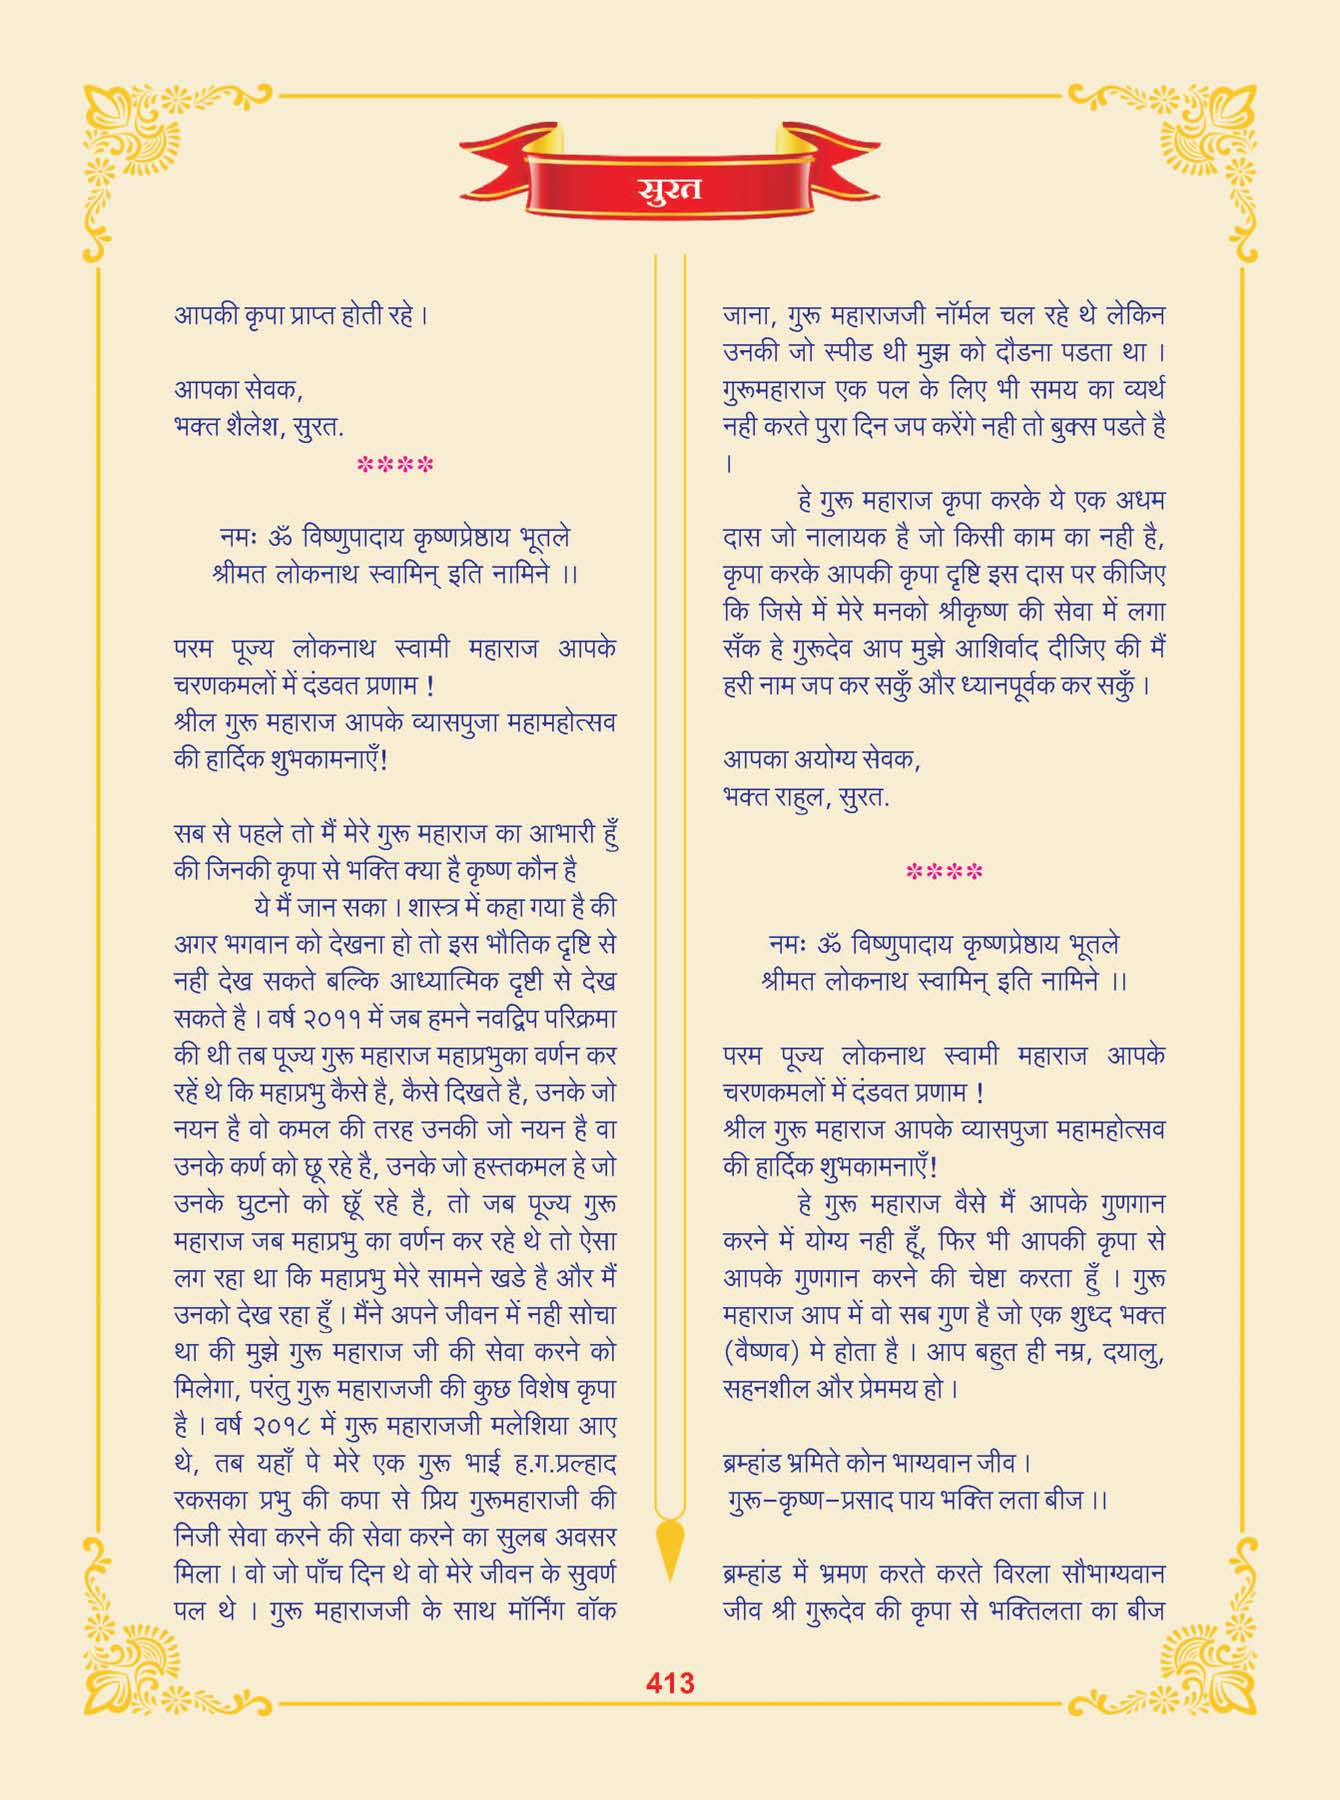 सुरत
आपकी कृपा प्राप्त होती रहे ।
आपका सेवक,
भक्त शैलेश, सुरत.
****
नमः ॐ विष्णुपादाय कृष्णप्रेष्ठाय भूतले
श्रीमत लोकनाथ स्वामिन् इति नामिने ।।
परम पूज्य लोकनाथ स्वामी महाराज आपके
चरणकमलों में दंडवत प्रणाम !
श्रील गुरू महाराज आपके व्यासपुजा महामहोत्सव
की हार्दिक शुभकामनाएँ!
सब से पहले तो मैं मेरे गुरू महाराज का आभारी हुँ
की जिनकी कृपा से भक्ति क्या है कृष्ण कौन है
ये मैं जान सका । शास्त्र में कहा गया है की
अगर भगवान को देखना हो तो इस भौतिक दृष्टि से
नही देख सकते बल्कि आध्यात्मिक दृष्टी से देख
सकते है । वर्ष २०११ में जब हमने नवद्विप परिक्रमा
की थी तब पूज्य गुरू महाराज महाप्रभुका वर्णन कर
रहें थे कि महाप्रभु कैसे है, कैसे दिखते है, उनके जो
नयन है वो कमल की तरह उनकी जो नयन है वा
उनके कर्ण को छू रहे है, उनके जो हस्तकमल हे जो
उनके घुटनो को छूॅ रहे है, तो जब पूज्य गुरू
महाराज जब महाप्रभु का वर्णन कर रहे थे तो ऐसा
लग रहा था कि महाप्रभु मेरे सामने खडे है और मैं
उनको देख रहा हुँ । मैंने अपने जीवन में नही सोचा
था की मुझे गुरू महाराज जी की सेवा करने को
मिलेगा, परंतु गुरू महाराजजी की कुछ विशेष कृपा
है । वर्ष २०१८ में गुरू महाराजजी मलेशिया आए
थे, तब यहाँ पे मेरे एक गुरू भाई ह.ग.प्रल्हाद
रकसका प्रभु की कपा से प्रिय गुरूमहाराजी की
निजी सेवा करने की सेवा करने का सुलब अवसर
मिला । वो जो पाँच दिन थे वो मेरे जीवन के सुवर्ण
पल थे । गुरू महाराजजी के साथ मॉर्निंग वॉक
जाना, गुरू महाराजजी नॉर्मल चल रहे थे लेकिन
उनकी जो स्पीड थी मुझ को दौडना पडता था ।
गुरूमहाराज एक पल के लिए भी समय का व्यर्थ
नही करते पुरा दिन जप करेंगे नही तो बुक्स पडते है
।
हे गुरू महाराज कृपा करके ये एक अधम
दास जो नालायक है जो किसी काम का नही है,
कृपा करके आपकी कृपा दृष्टि इस दास पर कीजिए
कि जिसे में मेरे मनको श्रीकृष्ण की सेवा में लगा
सँक हे गुरूदेव आप मुझे आशिर्वाद दीजिए की मैं
हरी नाम जप कर सकुँ और ध्यानपूर्वक कर सकुँ ।
आपका अयोग्य सेवक,
भक्त राहुल, सुरत.
****
नमः ॐ विष्णुपादाय कृष्णप्रेष्ठाय भूतले
श्रीमत लोकनाथ स्वामिन् इति नामिने ।।
परम पूज्य लोकनाथ स्वामी महाराज आपके
चरणकमलों में दंडवत प्रणाम !
श्रील गुरू महाराज आपके व्यासपुजा महामहोत्सव
की हार्दिक शुभकामनाएँ!
हे गुरू महाराज वैसे मैं आपके गुणगान
करने में योग्य नही हूँ, फिर भी आपकी कृपा से
आपके गुणगान करने की चेष्टा करता हुँ । गुरू
महाराज आप में वो सब गुण है जो एक शुध्द भक्त
(वैष्णव) मे होता है । आप बहुत ही नम्र, दयालु,
सहनशील और प्रेममय हो ।
ब्रम्हांड भ्रमिते कोन भाग्यवान जीव ।
गुरू-कृष्ण-प्रसाद पाय भक्ति लता बीज ।।
ब्रम्हांड में भ्रमण करते करते विरला सौभाग्यवान
जीव श्री गुरूदेव की कृपा से भक्तिलता का बीज
413